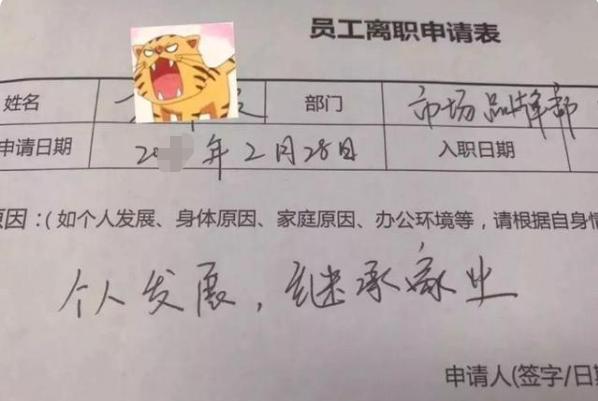 员工离职申请表
姓名 部门 市场品牌部
申请日期 20 年2月28日 入职日期
原因:(如个人发展、身体原因、家庭原因、办公环境等,请根据自身情
个人发展,继承家业
申请人(签字/日期